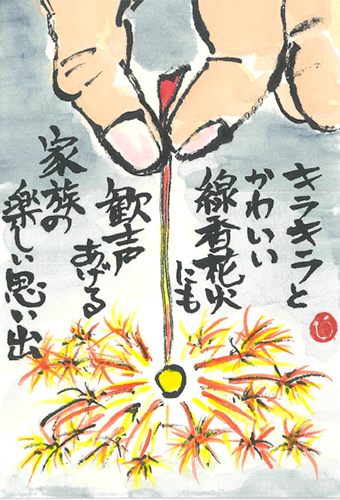 キラキラと
かわいい
線香花火
にも
歓声
あげる
家族の
楽しい思い出